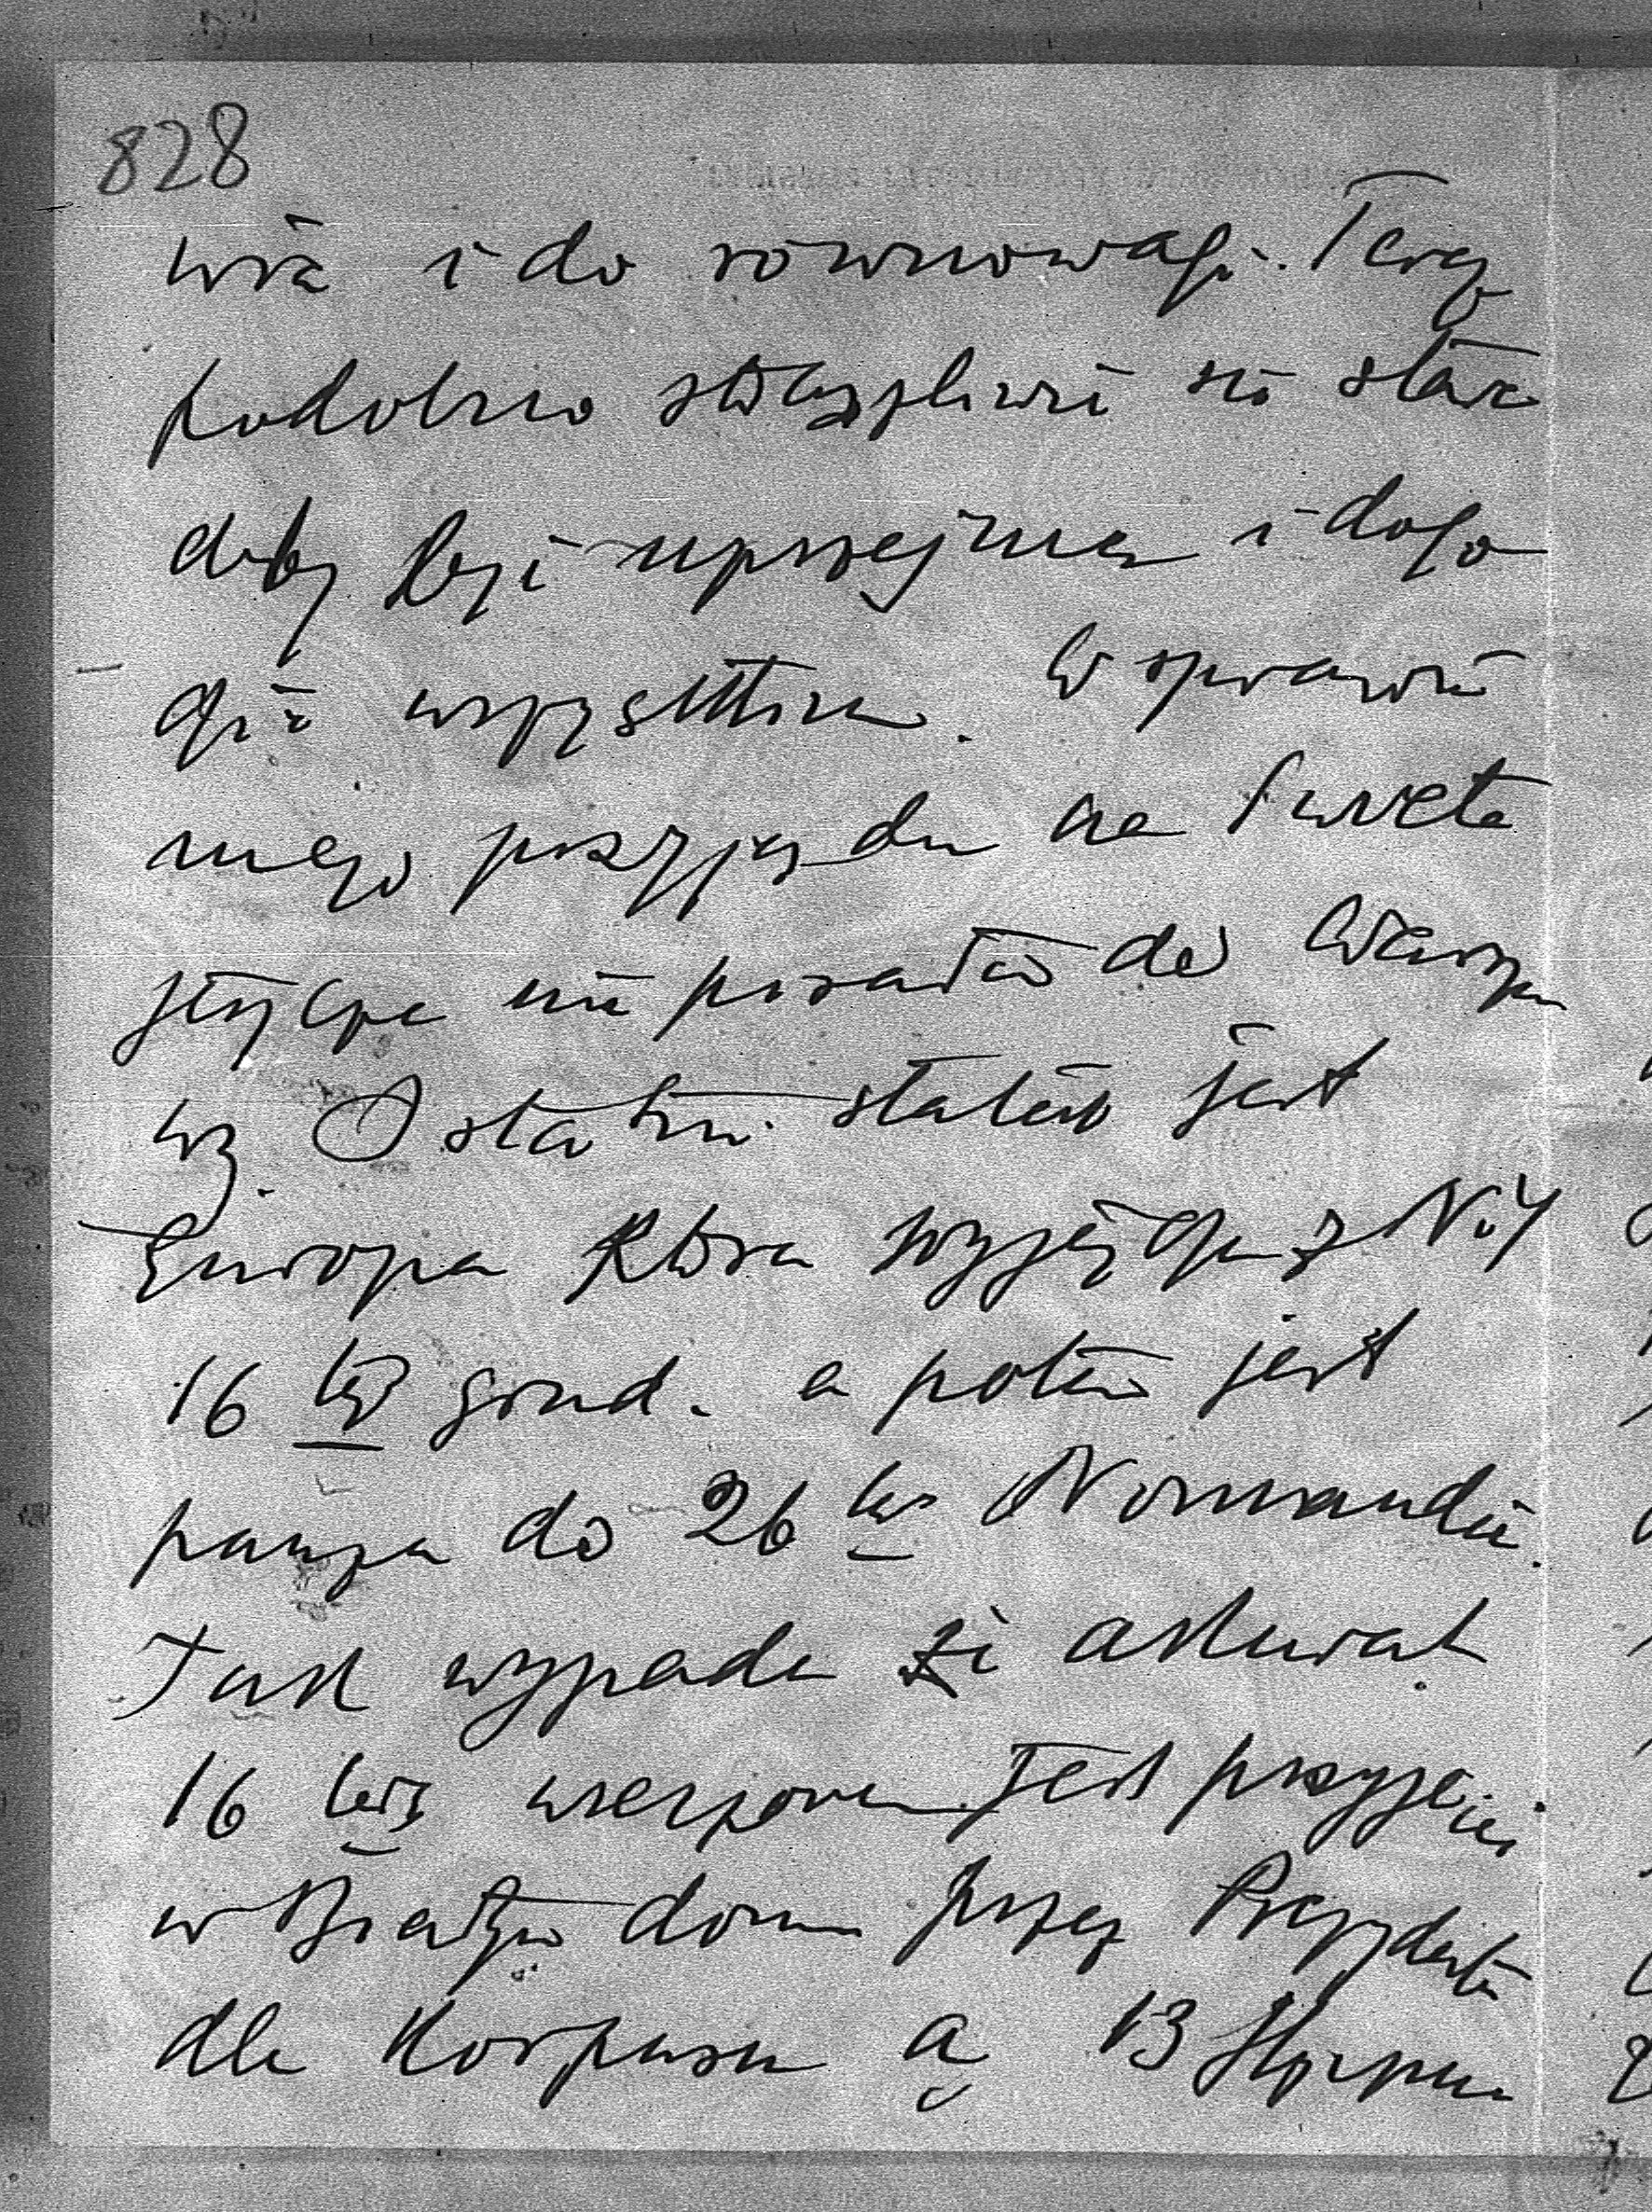 828
wia i do równowagi. Teraz
podobno straszliwie się stara
aby być uprzejma i dogo
dzić wszystkim. W sprawie
mego przyjazdu na Święta
jeszcze nie pisałem do Warsza
wy. Ostatni statek jest
Europa która wyjeżdża z N.Y
16 tego grud. a potem jest
pauza do 26 tego Normandie.
Tak wypada że akurat
16 tego wieczorem jest przyjęcie
w Białym domu przez Prezydenta
dla Korpusu a 13 Stycznia